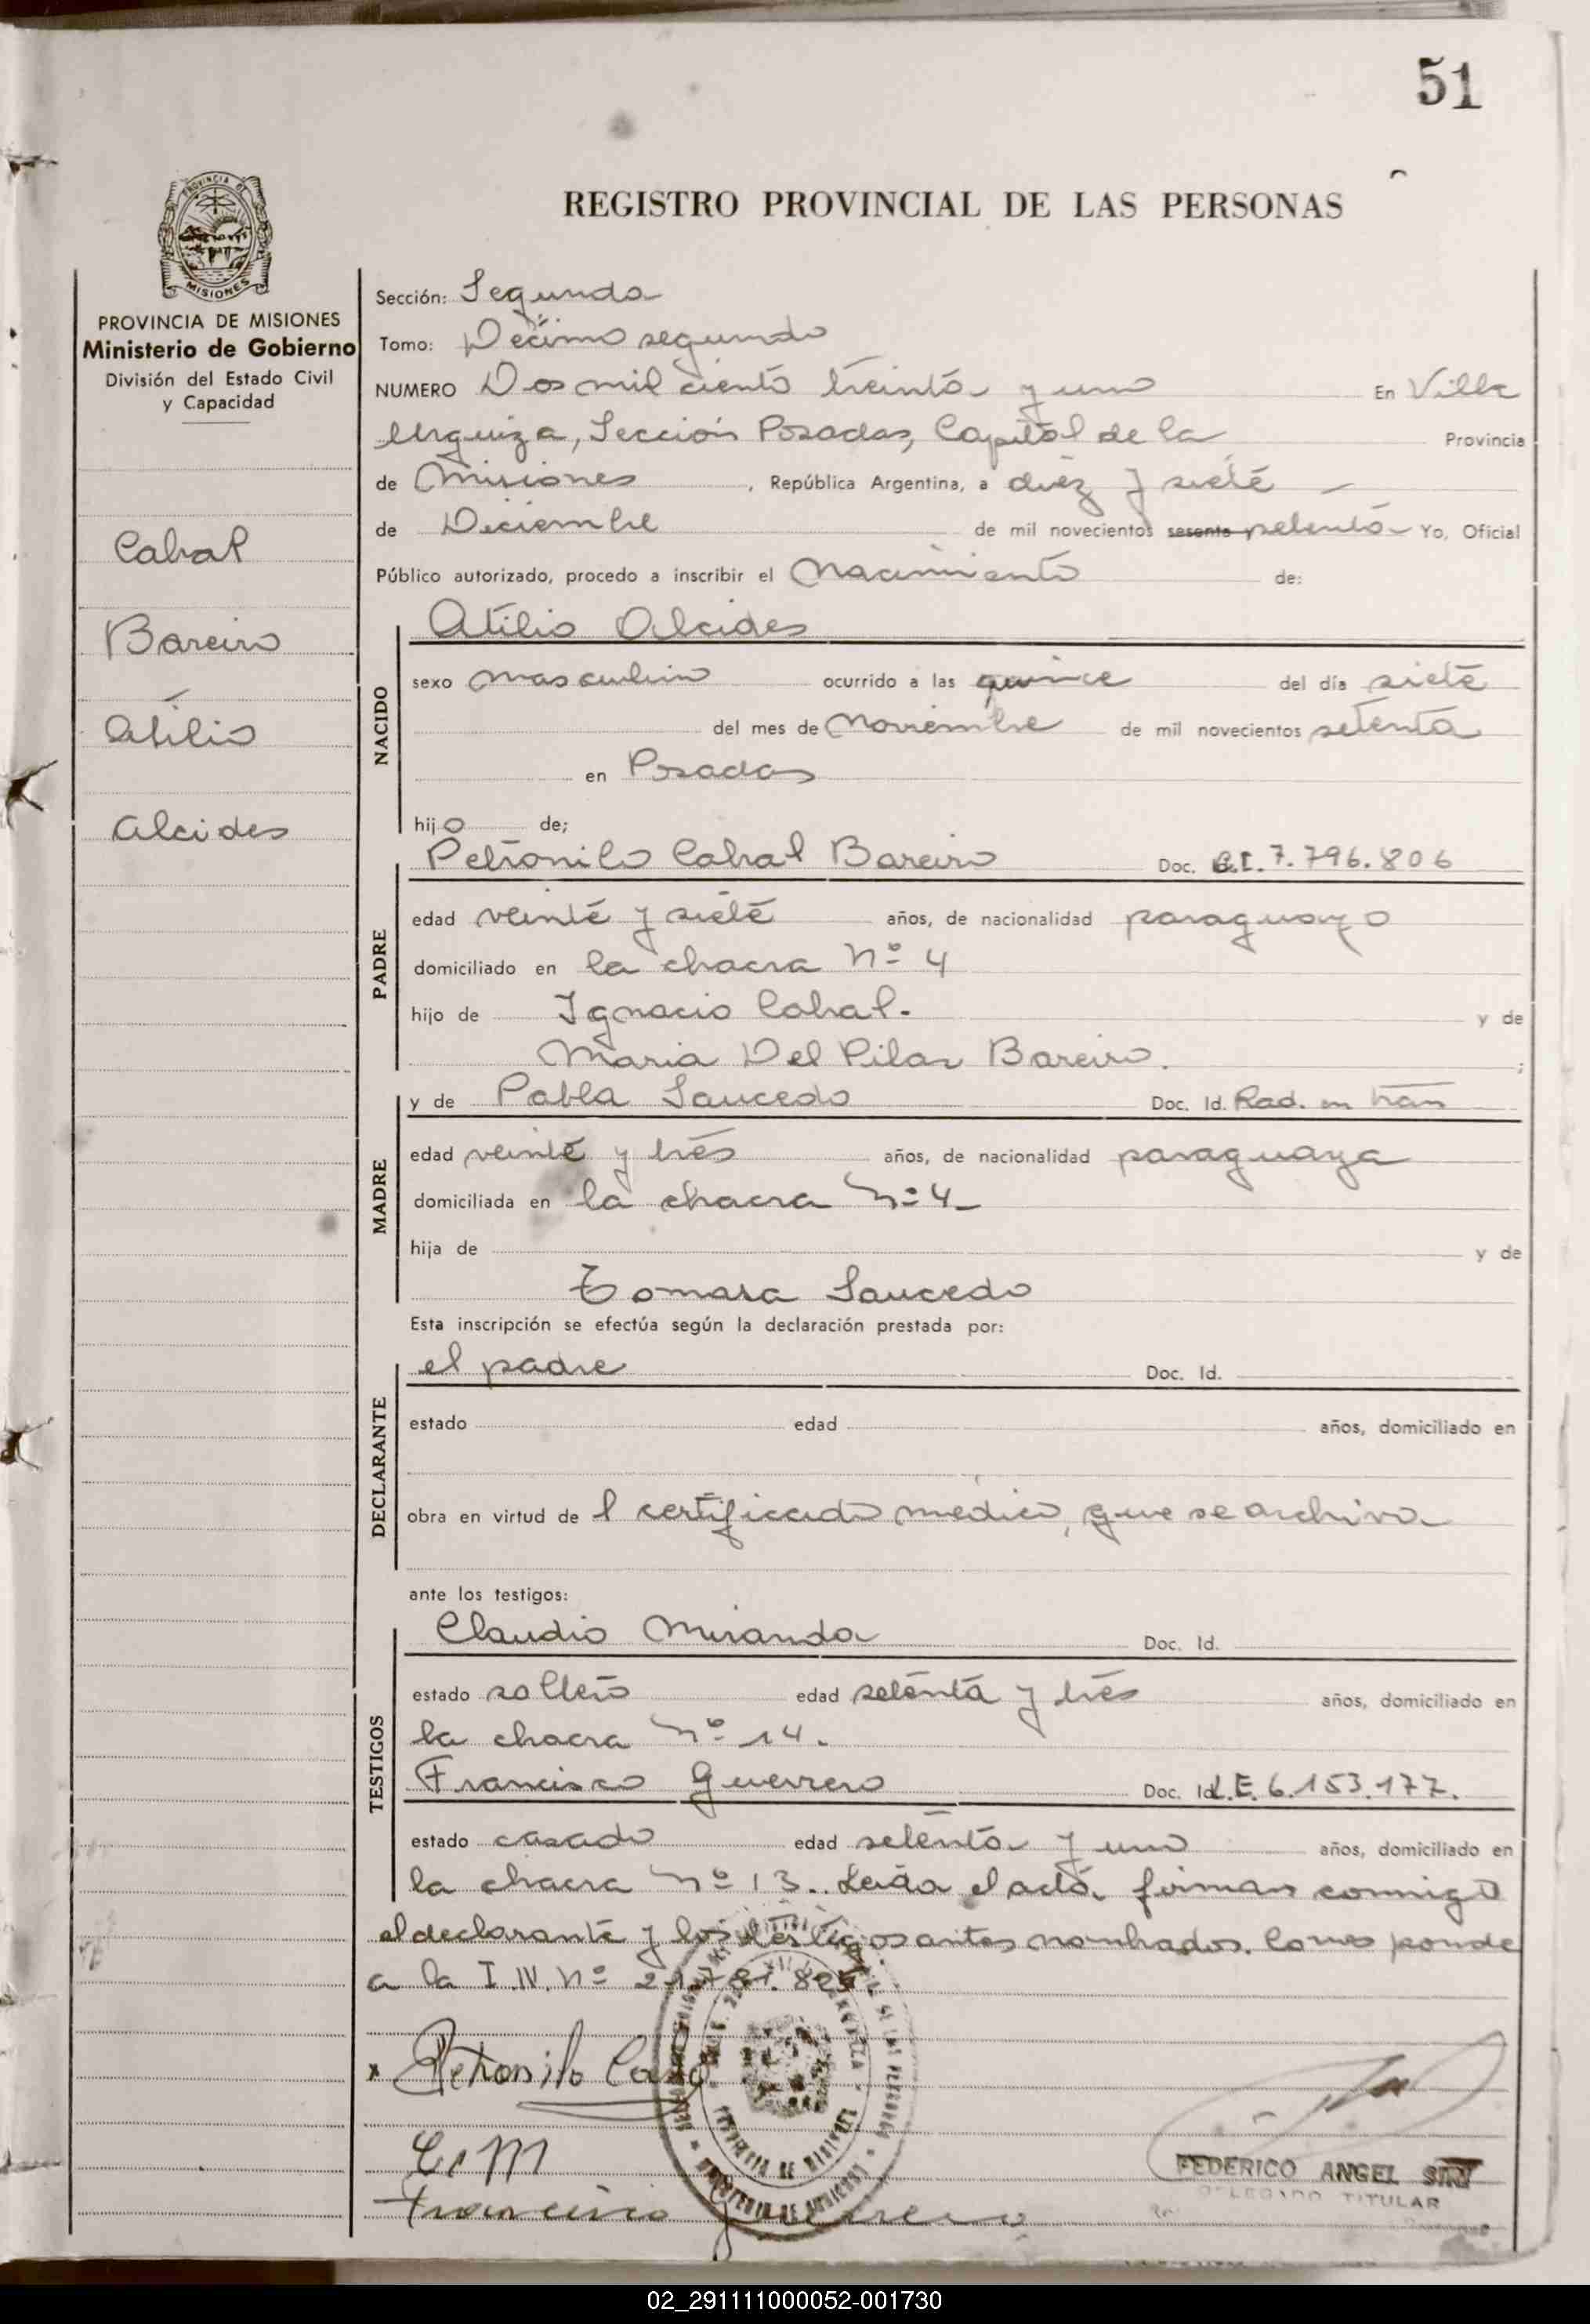 51
REGISTRO PROVINCIAL DE LAS PERSONAS
PROVINCIA DE
MISIONES
PROVINCIA DE MISIONES
Ministerio de Gobierno
División del Estado Civil
y Capacidad
Cabral
Bareiro
Atilio
Alcides
Sección: Segunda
Tomo: Décimo segundo
NUMERO Dos mil ciento treinta y uno En Villa
Urquiza, Sección Posadas, Capital de la Provincia
de Misiones, República Argentina, a diez y siete
de Diciembre de mil novecientos sesenta setenta Yo, Oficial
Público autorizado, procedo a inscribir el Nacimiento de:
NACIDO
Atilio Alcides
sexo masculino ocurrido a las quince del día siete
del mes de Noviembre de mil novecientos setenta
en Posadas
hijo de;
PADRE
Petronilo Cabral Bareiro Doc. C.I. 7.796.806
edad veinte y siete años, de nacionalidad paraguayo
domiciliado en la chacra Nº 4
hijo de Ignacio Cabral. y de
Maria Del Pilar Bareiro. ;
MADRE
y de Pabla Saucedo Doc. Id. Rad. en trám
edad veinte y tres años, de nacionalidad paraguaya
domiciliada en la chacra Nº 4
hija de y de
Tomasa Saucedo
Esta inscripción se efectúa según la declaración prestada por:
DECLARANTE
el padre Doc. Id.
estado edad años, domiciliado en
obra en virtud de l certificado médico, que se archiva
ante los testigos:
TESTIGOS
Claudio Miranda Doc. Id.
estado soltero edad setenta y tres años, domiciliado en
la chacra Nº 14.
Francisco Guerrero Doc. Id. L.E. 6.153.177.
estado casado edad setenta y uno años, domiciliado en
la chacra Nº 13. Leída el acta, firman conmigo
el declarante y los testigos antes nombrados. Corresponde
a la I.N. Nº
Petronilo
C. M
Francisco Guerrero
FEDERICO ANGEL
DELEGADO TITULAR
02_291111000052-001730